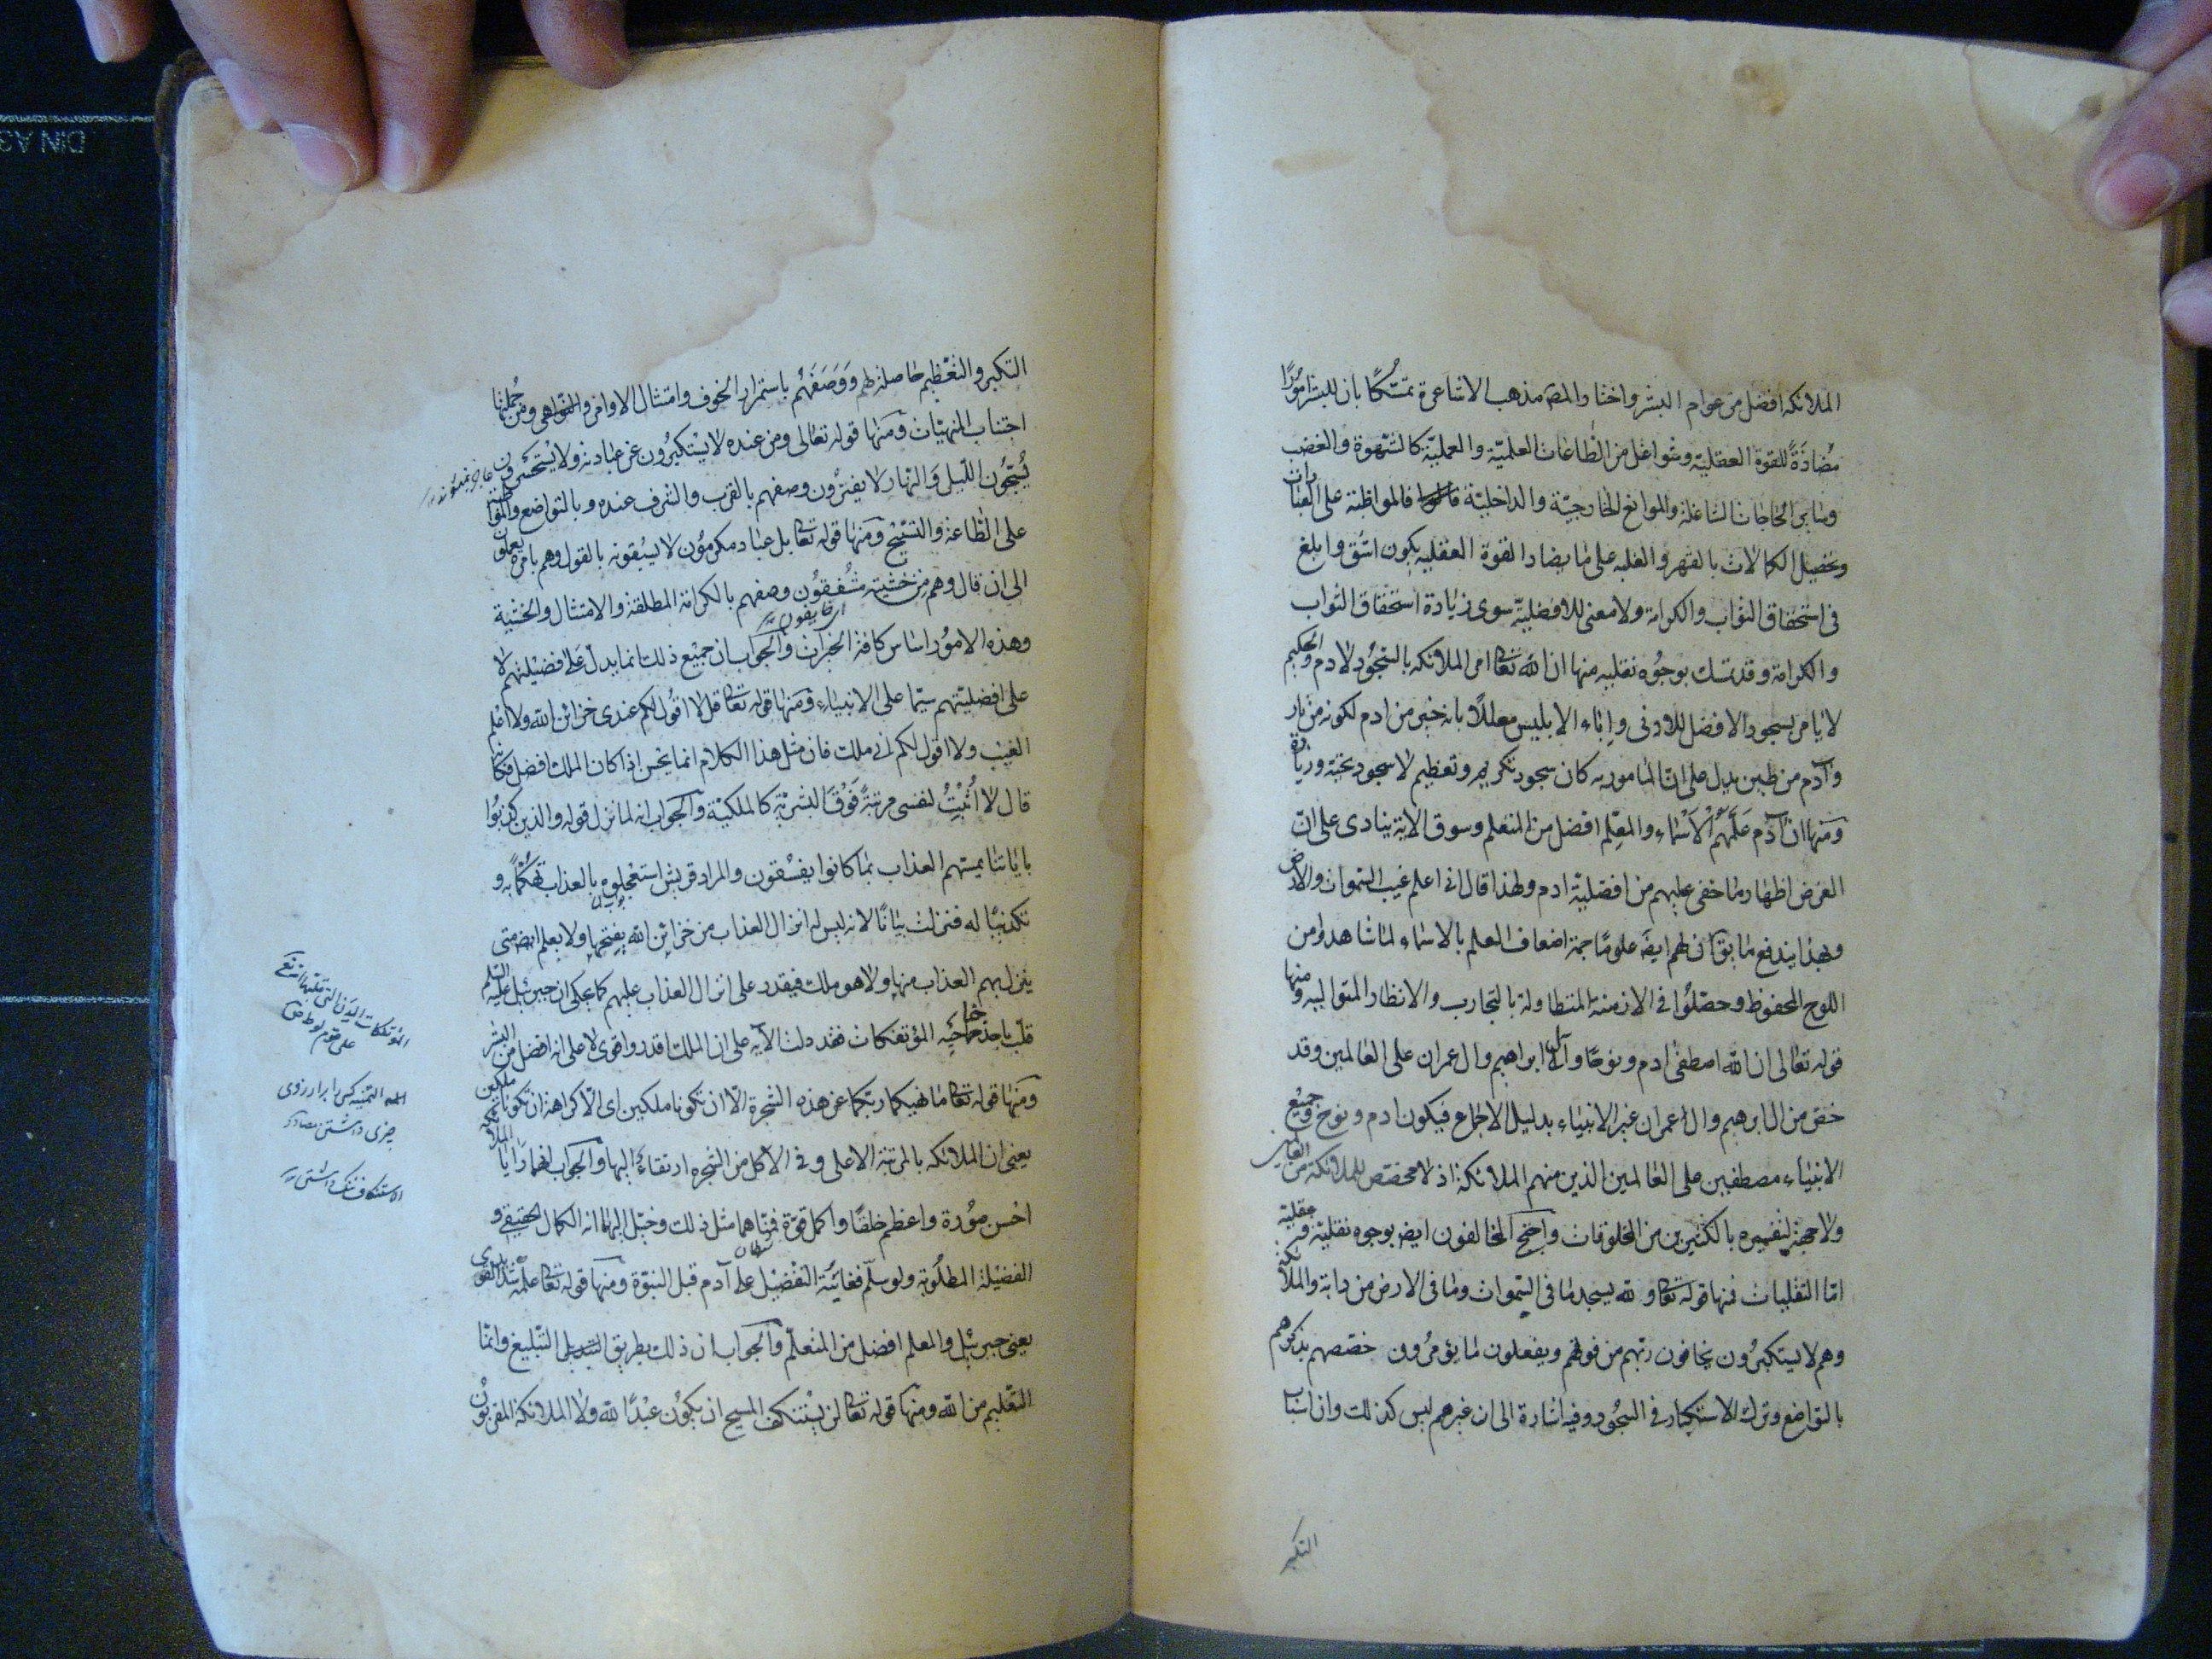 الملائكة افضل من عوام البشر واختار المصـ مذهب الاشاعرة تمسّكًا بان للبشر امُورًا
مُضادّةً للقوة العقليّة وشواغل من الطّاعات العلميّة والعمليّة كالشهوة والغضب
وسٰاير الحٰاجات الشاغلة والموانع الخارجيّة والداخليّة فالمواظبة على العبٰادات
وتحصيل الكمالات بالقهر والغلبه على مٰا يضاد القوة العقليه يكون اشق وابلغ
فى استحقاق الثواب والكرامة ولا معنى للافضليّة سوى زيادة استحقاق الثواب
والكرامة وقد تمسك بوجُوه نقليه منها ان الله تعٰا امر الملائكه بالسّجُود لادم والحكيم
لا يٰامر بسجود الافضل للادنى وإبٰاء الابليس معللًا بانه خير من ادم لكونه من نار
وآدم من طين يدل على انّ المٰامور به كان سجود تكريم وتعظيم لا سجود تحيّة وزيٰارة
ومنها انّ آدم عَلَّمَهُمُ الْاَسْمٰاء والمعلّم افضل من المتعلم وسوق الاية ينادى على انّ
الغرض اظهار مٰا خفى عليهم من افضليّة ادم ولهذا قال انى اعلم غيب السّموات والارض
وبهذا يندفع مٰا يقٰا ان لهم ايضـ علومًا جمة اضعاف العلم بالاسماء لمٰا شاهدوٰا من
اللوح المحفوظ وحصّلُوا فى الازمنة المتطاولة بالتجارب والانظار المتواليه ومنها
قوله تعٰالى ان الله اصطفى ادم ونوحًا وآل ابراهيم وال عمران على العٰالمين وقد
خصّ من ال ابرهيم وال عمران غير الانبيٰاء بدليل الاجماع فيكون ادم ونوح وجميع
الانبيٰاء مصطفين على العٰالمين الذين منهم الملائكة اذ لا مخصّص للملائكة من العالمين
ولا جهة لتفسيره بالكثيرين من المخلوقات واحتجّ المخالفون ايضـ بوجوه نقليّة وعقليّة
امّا النقليات فمنها قوله تعٰا ولله يسجد مٰا فى السّموات ومٰا فى الارض من دابة والملائكة
وهم لا يستكبرُون يخافون ربّهم من فوقهم ويفعلون مٰا يؤمرُون خصّصهم بذكرهم
بالتواضع وترك الاستكبار فى السجُود وفيه اشٰارة الى ان غيرهم ليس كذلك وان اسبٰاب
التكبر
التكبر والتعْظيم حٰاصلة لهم وَوَصَفَهُم باستمرار الخوف وامتثال الاوامر والنواهى ومن جُملتها
اجتناب المنهيّات ومنها قوله تعٰالى ومن عنده لا يسْتكبرُون عن عبادته ولا يسْتحسرون
يُسَبّحُون اللّيل وَالنّهار لٰا يفترُون وصفهم بالقرب والشرف عنده وبالتواضع والمواظبة
على الطّاعة والتسْبيح ومنهٰا قوله تعٰا بل عبٰاد مكرمُون لا يسبقونه بالقول وهم بامره يعملون
الى ان قال وهم من خشيته مُشْفقُون وصفهم بالكرامة المطلقة والامتثال والخشية
اى خايفون
وهذه الامُور اساس كافة الخيرات والجواب ان جميع ذلك انما يدلّ عَلى فضيلتهم لا
على افضليّتهم سيّما على الانبيٰاء ومنهٰا قوله تعٰا قل لا اقُول لكم عندى خزائن الله ولا اعْلم
الغيب ولا اقول لكم انى ملك فان مثل هذا الكلام انما يحسن اذا كان الملك افضل فكانّه
قال لا اُثْبِتُ لنفسى مرتبةً فَوْقَ البشريّة كالملكيّة والجواب انه لما نزل قوله والذين كذبُوا
باٰياتنا يمسّهم العذاب بمٰا كانوا يفسُقون والمراد قريش استعجلوه بالعذاب تهكّمًا به و
تكذيبًا له فنزلت بيٰانًا لانه ليس له انزال العذاب من خزائن الله يفتحها ولا يعلم ايضـ متى
ينزل بهم العذاب منها ولا هو ملك فيقدر على انزال العذاب عليهم كما يحكى ان جبرئيل عليه السّلم
قلّب باحد جناحيه المؤتفكات فقد دلت الآيه على ان الملك اقدر واقوى لا على انه افضل من البشر
ومنهٰا قوله تعٰا مٰا نهٰيكما ربّكما عن هذه الشجرة الّا ان تكونا ملكين اى الّا كراهة ان تكونا ملكين
يعنى ان الملائكه بالمرتبة الاعلى وفى الاكل من الشجره ارتقاءً اليها والجواب انهما رَأيٰا الملائكه
احسن صُورة واعظم خلقًا واكمل قوّة فمنّاهما مثل ذلك وخيّل اليهمٰا انه الكمال الحقيقى و
الفضيلة المطلُوبة ولو سلّم فغايتُهُ التفْضيل على آدم قبل النبوّة ومنهٰا قوله تعٰا علّمهُ شَديد القوى
يعنى جبرئيل والمعلم افضل من المتعلّم والجواب ان ذلك بطريق التّبليغ وانّمٰا
التعْليم من الله ومنهٰا قوله تعٰا لن يسْتنكف المسيح ان يكُون عبْدًا لله ولٰا الملائكة المقربُون
على قوم لوط
كسى را برارزوى
چيزى داشتن
الاستنكاف ننك داشتن